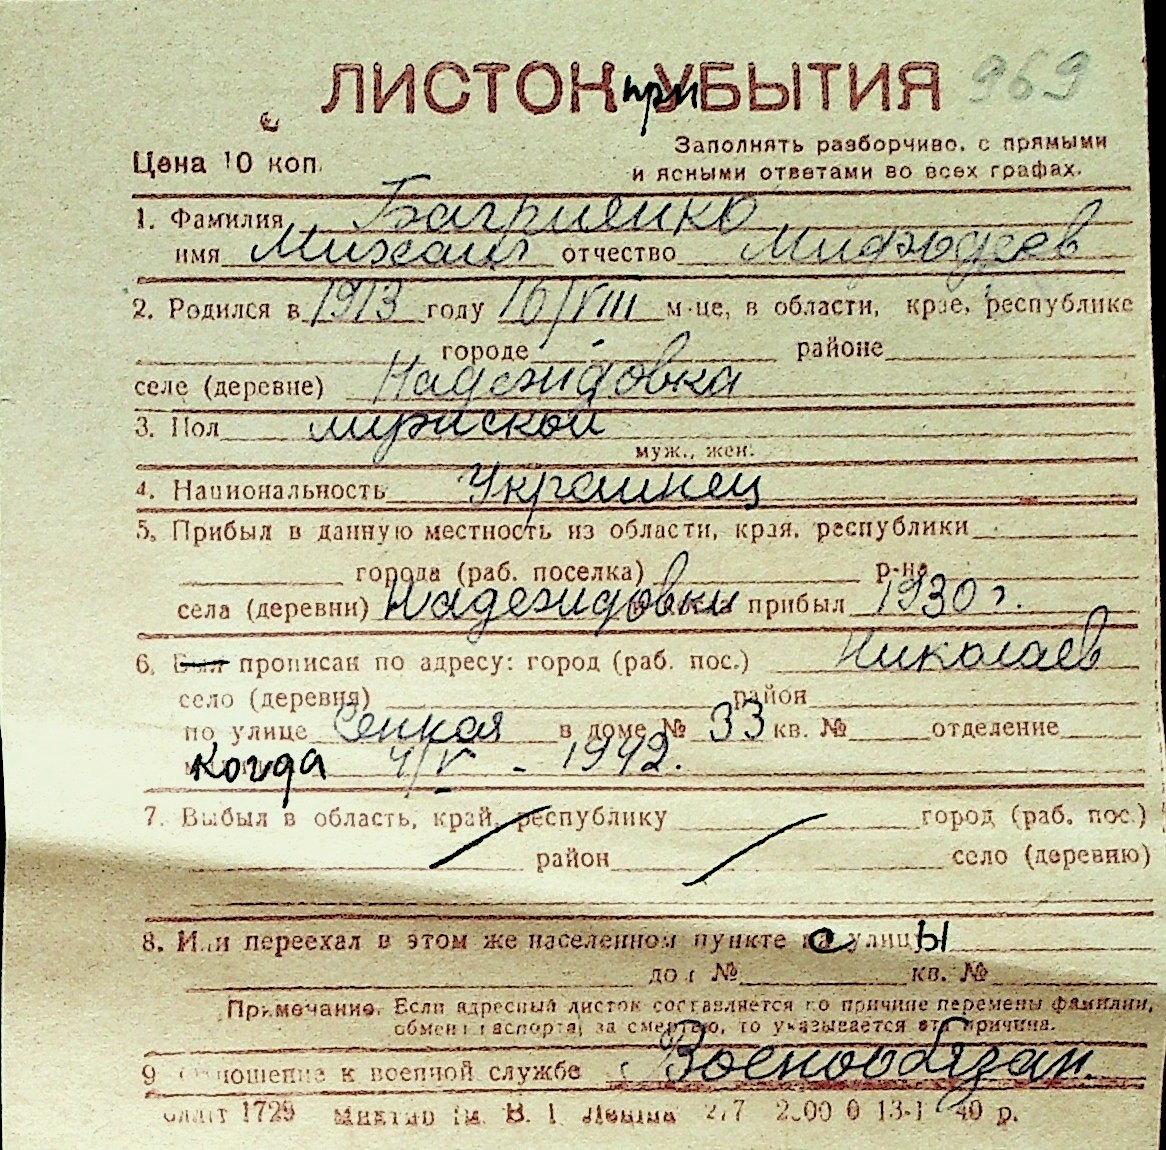 ЛИСТОК приУБЫТИЯ 969
Цена 10 коп.
Заполнять разборчиво, с прямыми
и ясными ответами во всех графах.
1. Фамилия Багриенко
имя Михаил отчество Мифодиев
2. Родился в 1913 году 16/VIII м-це, в области, крае, республике
городе районе
селе (деревне) Надеждовка
3. Пол мужской
муж., жен.
4. Национальность Украинец
5. Прибыл в данную местность из области, края, республики
города (раб. поселка) р-на
села (деревни) Надеждовки прибыл 1930 г.
6. Был прописан по адресу: город (раб. пос.) Николаев
село (деревня) район
по улице Сенная в доме № 33 кв. № отделение
когда 4/V - 1942.
7. Выбыл в область, край, республику город (раб. пос.)
район село (деревню)
8. Или переехал в этом же населенном пункте с улицы
дом № кв. №
Примечание. Если адресный листок составляется по причине перемены фамилии,
обмена паспорта, за смертью, то указывается эта причина.
9 Отношение к военной службе Военообязан.
1729 им. В. І. Леніна 2/7 13-1 40 р.